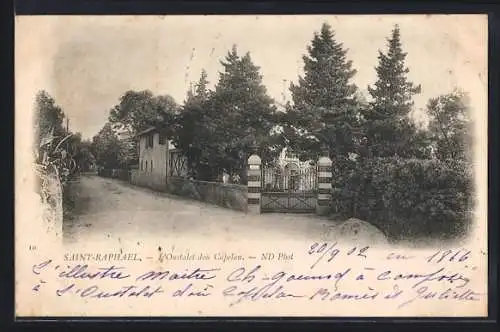 10
SAINT-RAPHAËL. — L'Oustalet dou Capelan. — ND Phot
20/9/02 en 1866
L'illustre Maître Ch. Gounod a composé
à l'Oustalet dou Capelan Roméo et Juliette